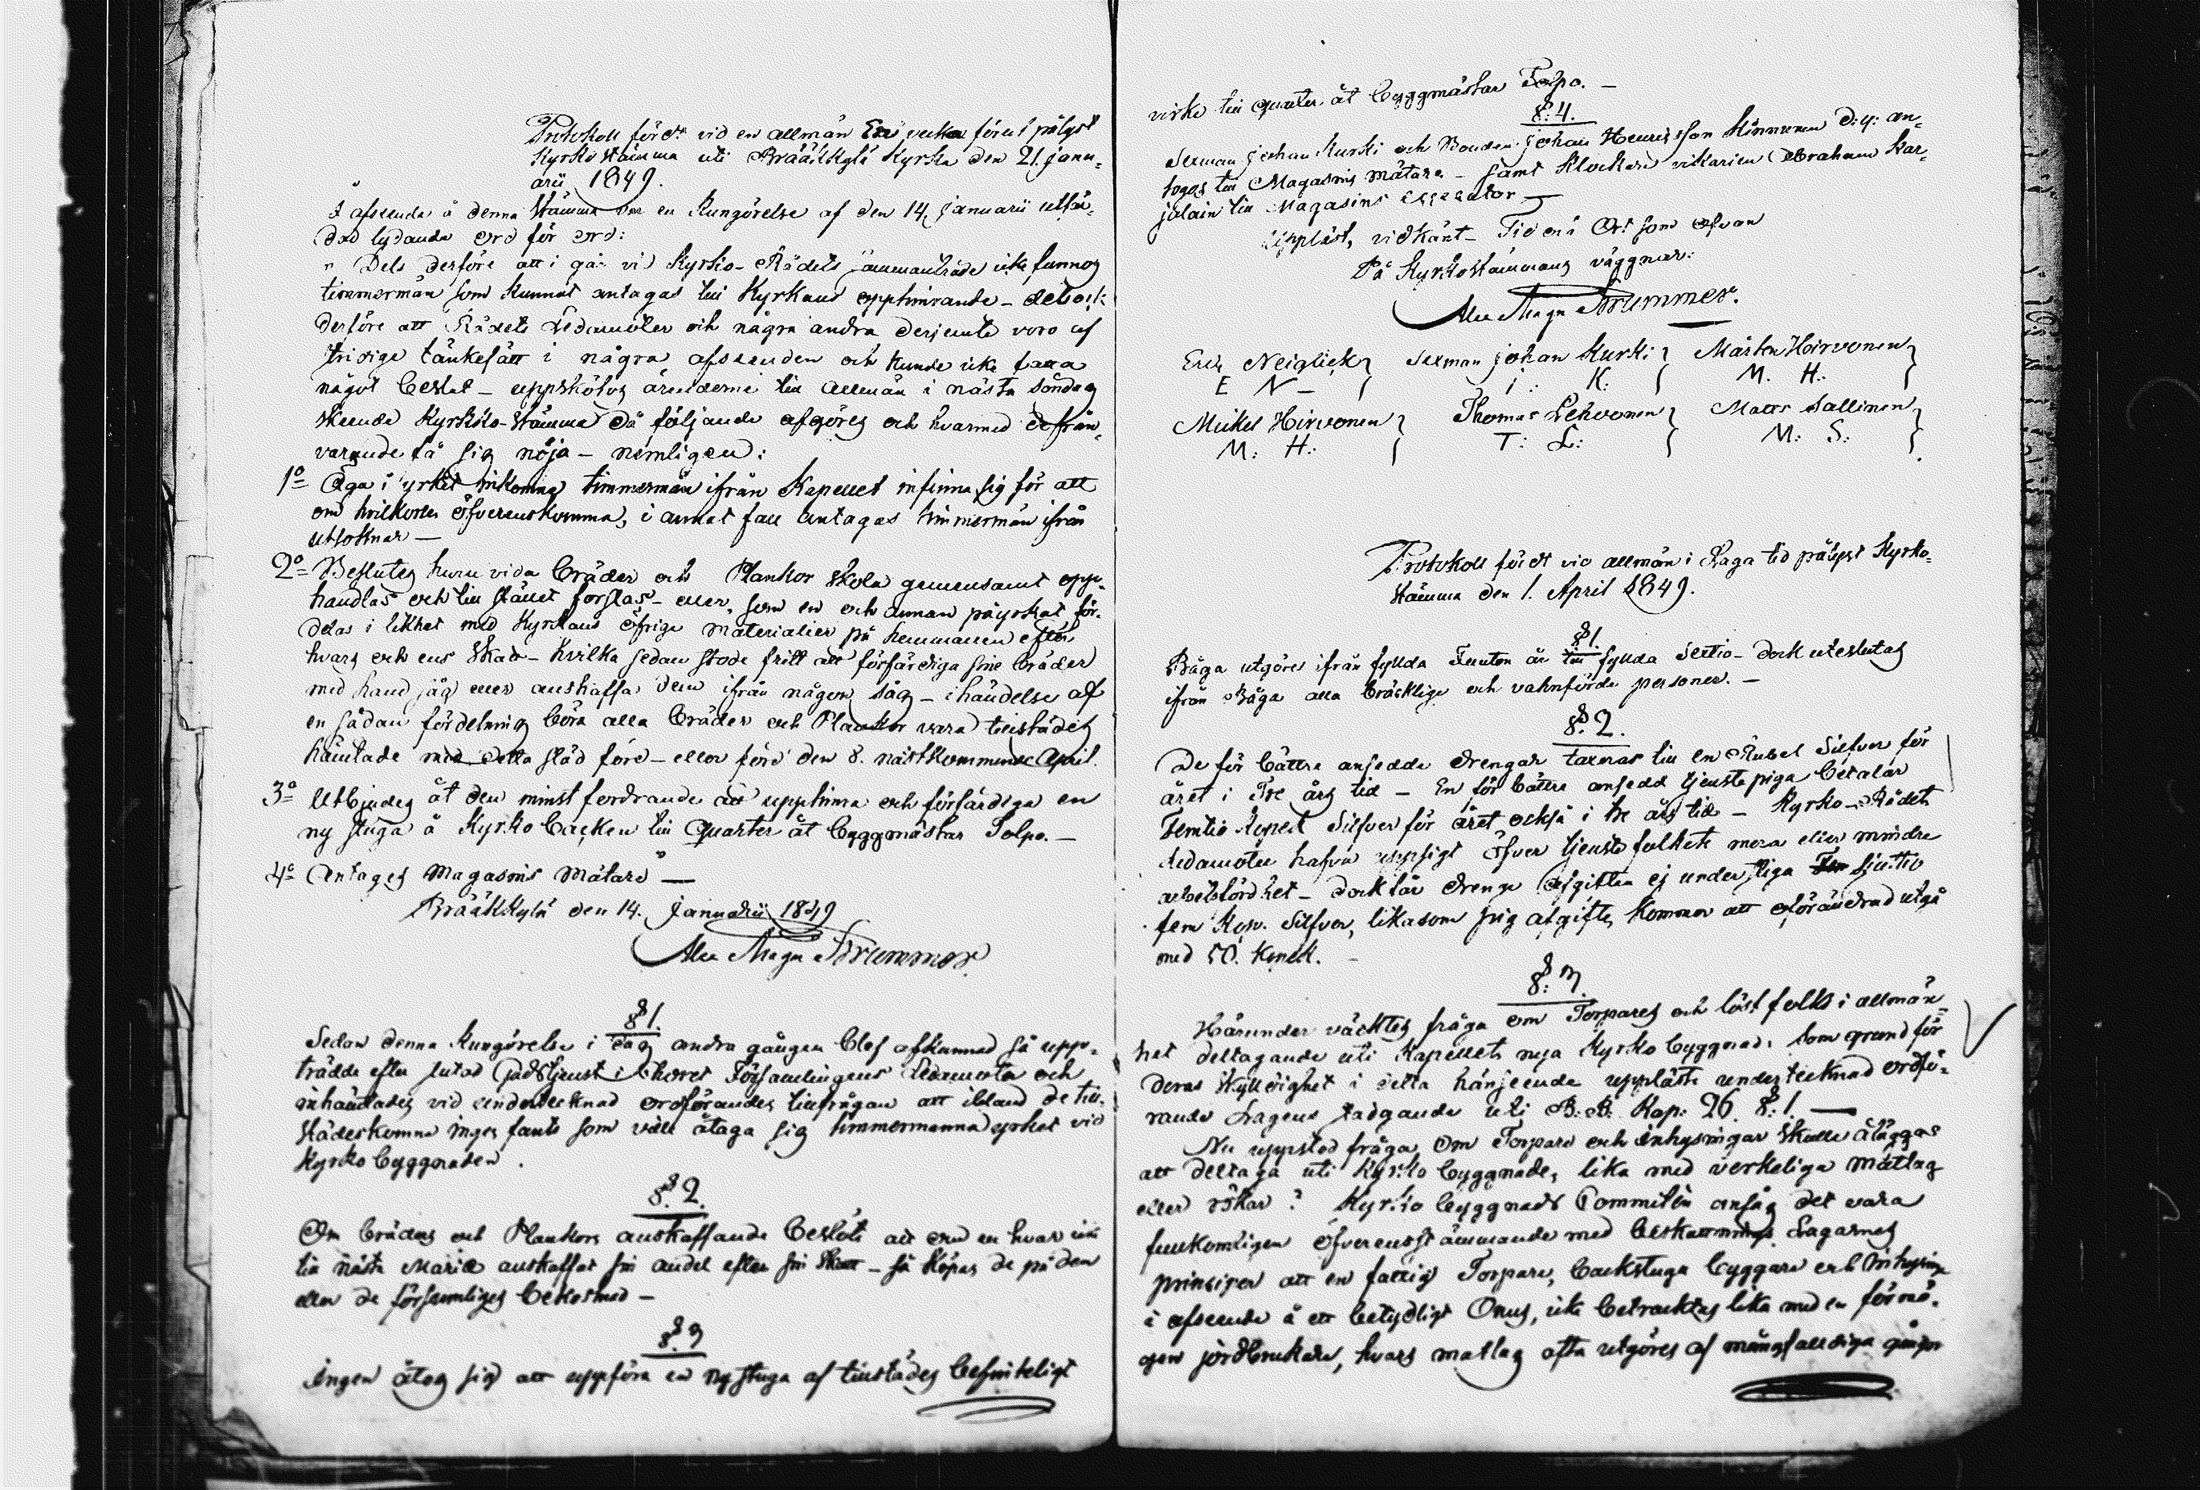 Protokoll fördt vid en allmän En vecka förut pålyst
Kyrkostämma uti Brääkkylä Kyrka den 21. Janu-
arii 1849.
I afseende å denna Stämma var en Kungörelse af den 14. Januarii utfär-
dad lydande ord för ord:
" Dels derföre att i går vid Kyrko-Rådets sammanträde icke funnos
timmermän som kunnat antagas till Kyrkans upptimrande - dels ock
derföre att Rådets Ledamöter och några andra derjemte voro af
stridige tänkesätt i några afseenden och kunde icke fatta
något beslut - uppskötos ärenderne till allmän i nästa söndag
skeende Kyrko-Stämma då följande afgöres och hvarmed de från-
varande få sig nöja - nemligen:
1o Äga i yrket inkomne timmermän ifrån Kapellet infinna sig för att
om vilkoren öfverenskomma, i annat fall antagas timmermän ifrån
utsoknar -
2o Beslutes huru vida bräder och Plankor skola gemensamt upp-
handlas och till stället forslas - eller, som en och annan påyrkat för-
delas i likhet med Kyrkans öfriga materialier på hemmanen efter
hvars och ens Skatt - hvilka sedan stode fritt att förfärdiga sine bräder
med hand såg eller anskaffa dem ifrån någon såg - i händelse af
en sådan fördelning böra alla bräder och Plankor vara tillstädes
hämtade med detta släd före - eller före den 8. nästkommande April.
3o Utbjudes åt den minst fordrande att upptimra och förfärdiga en
ny stuga å Kyrko backen till Quarter åt byggmästar Tolpo. -
4o Antages Magasins Mätare -
Brääkkylä den 14. Januarii 1849
Alex Magn Brummer.
§ 1.
Sedan denna Kungörelse i dag andra gången blef afkunnad så upp-
trädde efter slutad Gudstjenst i Choret Församlingens Ledamöter och
inhämtades vid undertecknad ordförandes tillfrågan att ibland de till-
städeskomne ingen fants som ville åtaga sig timmermanna yrket vid
Kyrko byggnaden.
§ 2.
Om bräders och Plankors anskaffande beslöts att om en hvar icke
till nästa Mariæ anskaffat sin andel efter sin Skatt - så köpas de på den
eller de försumliges bekostnad -
§ 3
Ingen åtog sig att uppföra en ny stuga af tillstädes befinteligt
virke till quarter åt byggmästar Tolpo. -
§ 4.
Sexman Johan Kurki och Bonden Johan Henricsson Kinnunen d.y. an-
togos till Magasins mätare - samt Klockare vikarien Abraham Kar-
jalain till Magasins
Uppläst, vidkänt - Tid och Ort som ofvan
På Kyrkostämmans vägnar:
Alex Magn Brummer.
Erik Neiglick } Sexman Johan Kurki } Mårten Hirvonen }
E N - I: K: M. H.
Mickel Hirvonen } Thomas Lehvonen } Matts Sallinen }
M: H: T: L: M: S:
Protokoll fördt vid allmän i Laga tid pålyst Kyrko-
stämma den 1. April 1849.
§ 1.
Båga utgöres ifrån fyllda Femton år till fyllda Sextio - dock uteslutas
ifrån Båga alla bräcklige och vahnförde personer. -
§ 2.
De för bättre ansedde drengar taxeras till en Rubel Silfver för
året i Tre års tid - En för bättre ansedd tjenste piga betalar
Femtio Kopek Silfver för året också i tre års tid - Kyrko-Rådets
Ledamöter hafva uppsigt öfver tjenste folkets mera eller mindre
arbetsfördhet - dock får drenge afgiften ej understiga Sjuttio
fem Kop. Silfver, likasom pig afgiften kommer att oförändrad utgå
med 50. Kopek. -
§ 3.
Härunder väcktes fråga om Torpares och löst folks i allmän-
het deltagande uti Kapellets nya Kyrko byggnad: som grund för
deras skyldighet i detta hänseende uppläste undertecknad ordfö-
rande Lagens stadgande uti B.B. Kap: 26 §: 1. -
Nu uppstod fråga, om Torpare och inhysingar skulle åläggas
att deltaga uti Kyrko byggnade, lika med verkeliga matlag
eller rökar? Kyrko byggnads Committén ansåg det vara
fullkomligen öfverensstämmande med beskattnings Lagarnes
prinsiper att en fattig Torpare, backstuga byggare och inhysing
i afseende å ett betydligt Onus, icke betraktas lika med en förmö-
gen jordbrukare, hvars matlag ofta utgöres af mångfalldiga